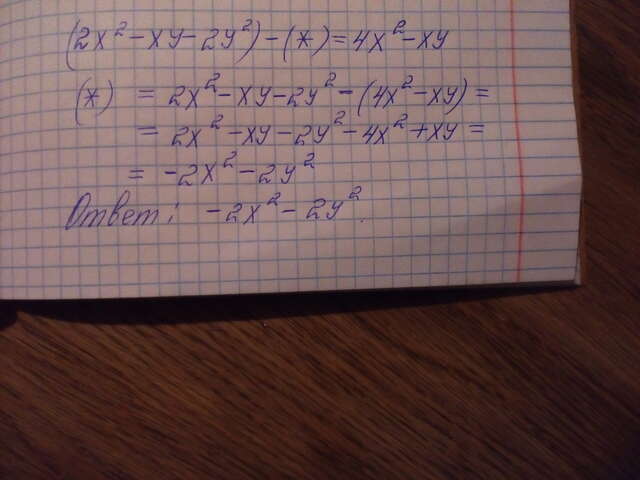 (2x² - xy - 2y²) - (*) = 4x² - xy
(*) = 2x² - xy - 2y² - (4x² - xy) =
= 2x² - xy - 2y² - 4x² + xy =
= -2x² - 2y²
Ответ: -2x² - 2y².